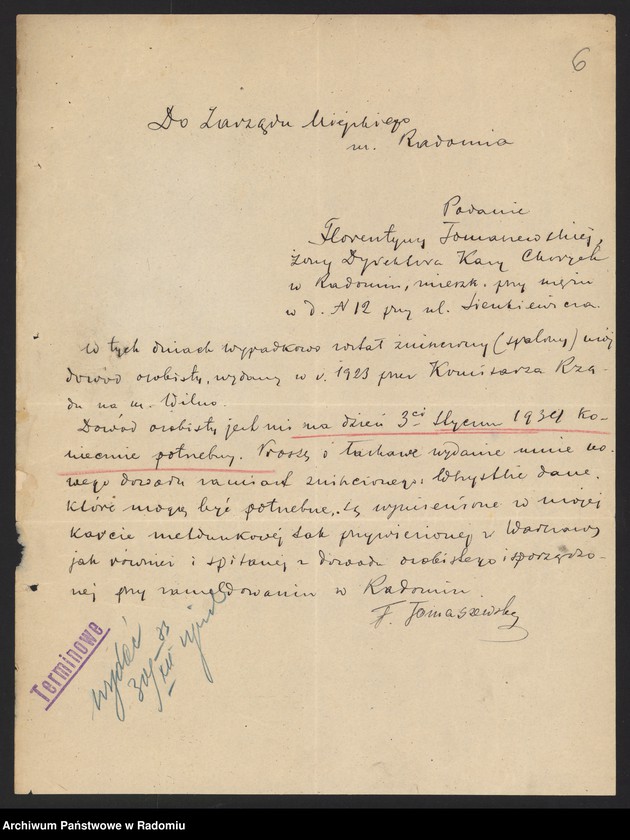 6
Do Zarządu Miejskiego
m. Radomia
Podanie
Florentyny Tomaszewskiej,
żony Dyrektora Kasy Chorych
w Radomiu, mieszk. przy mężu
w d. N 12 przy ul. Sienkiewicza.
W tych dniach wypadkowo został zniszczony (spalony) mój
dowód osobisty, wydany w r. 1923 przez Komisarza Rzą-
du na m. Wilno.
Dowód osobisty jest mi na dzień 3ci stycznia 1934 ko-
niecznie potrzebny. Proszę o łaskawe wydanie mnie no-
wego dowodu zamiast zniszczonego. Wszystkie dane,
które mogą być potrzebne, są wymienione w mojej
karcie meldunkowej tak przywiezionej z Warszawy
jak również i spisanej z dowodu osobistego i sporządzo-
nej przy zameldowaniu w Radomiu.
F. Tomaszewska
Terminowe
wydać
30/XII 33
Archiwum Państwowe w Radomiu